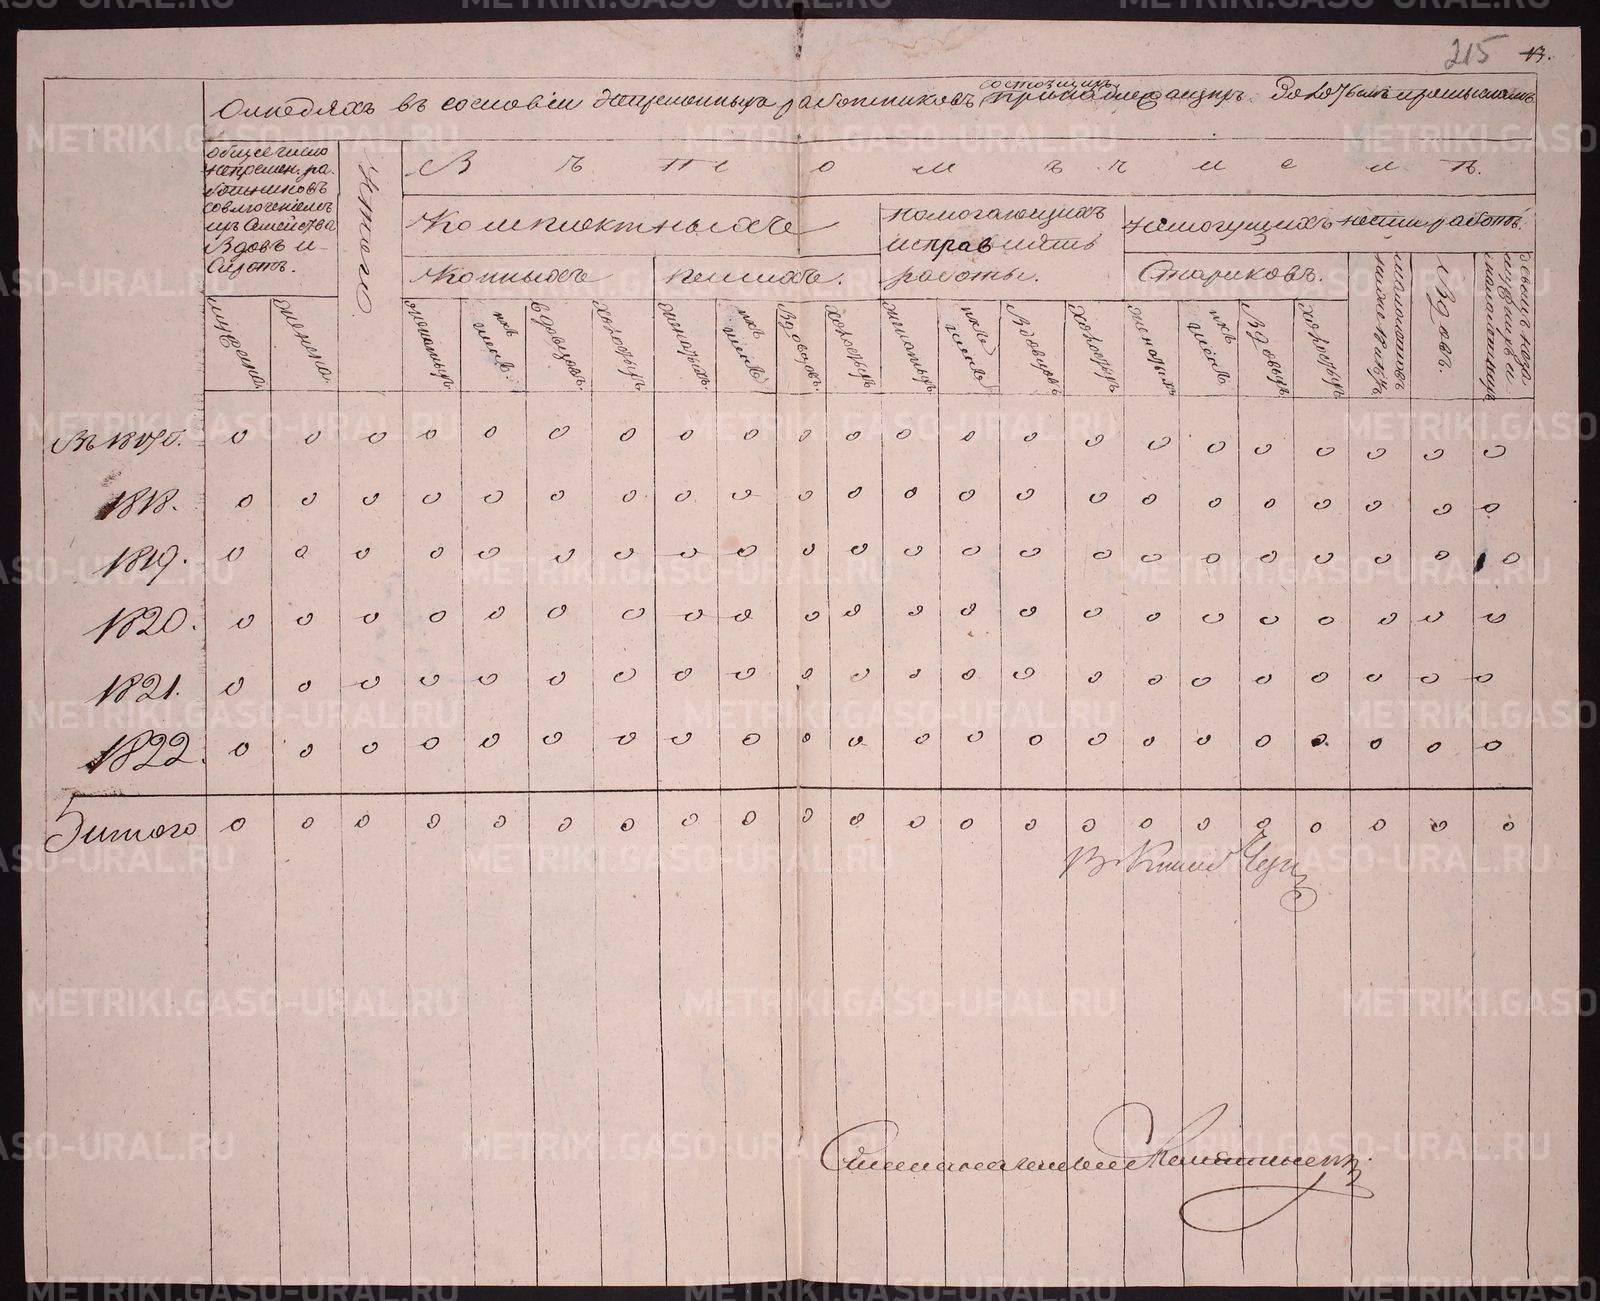 215 13.
О людяхъ въ сословіи непременныхъ работниковъ состоящихъ при золотымъ промысламъ
Общее число
непремен. ра-
ботниковъ
совлюченіемъ
ихъ Семейства
Вдовъ и
Сиротъ.
Итого
В ъ т о м ъ ч и с л ѣ.
Комплектныхъ
помогающихъ
исправлять
работы.
немогущихъ нести работъ.
Конныхъ
пешихъ.
Стариковъ.
мужеска.
женска.
женатыхъ
ихъ
женъ.
вдовцовъ.
холостыхъ
женатыхъ.
ихъ
женъ
Вдовцовъ.
холостыхъ
женатыхъ
ихъ
женъ
Вдовцовъ
холостыхъ
женатыхъ
ихъ
женъ
Вдовцовъ
холостыхъ
малолетковъ
Вдовъ.
Въ 0 0 0 0 0 0 0 0 0 0 0 0 0 0 0 0 0 0 0 0 0 0
1818. 0 0 0 0 0 0 0 0 0 0 0 0 0 0 0 0 0 0 0 0 0 0
1819. 0 0 0 0 0 0 0 0 0 0 0 0 0 0 0 0 0 0 0 0 0 0
1820. 0 0 0 0 0 0 0 0 0 0 0 0 0 0 0 0 0 0 0 0 0 0
1821. 0 0 0 0 0 0 0 0 0 0 0 0 0 0 0 0 0 0 0 0 0 0
1822. 0 0 0 0 0 0 0 0 0 0 0 0 0 0 0 0 0 0 0 0 0 0
итого 0 0 0 0 0 0 0 0 0 0 0 0 0 0 0 0 0 0 0 0 0 0
METRIKI.GASO-URAL.RU